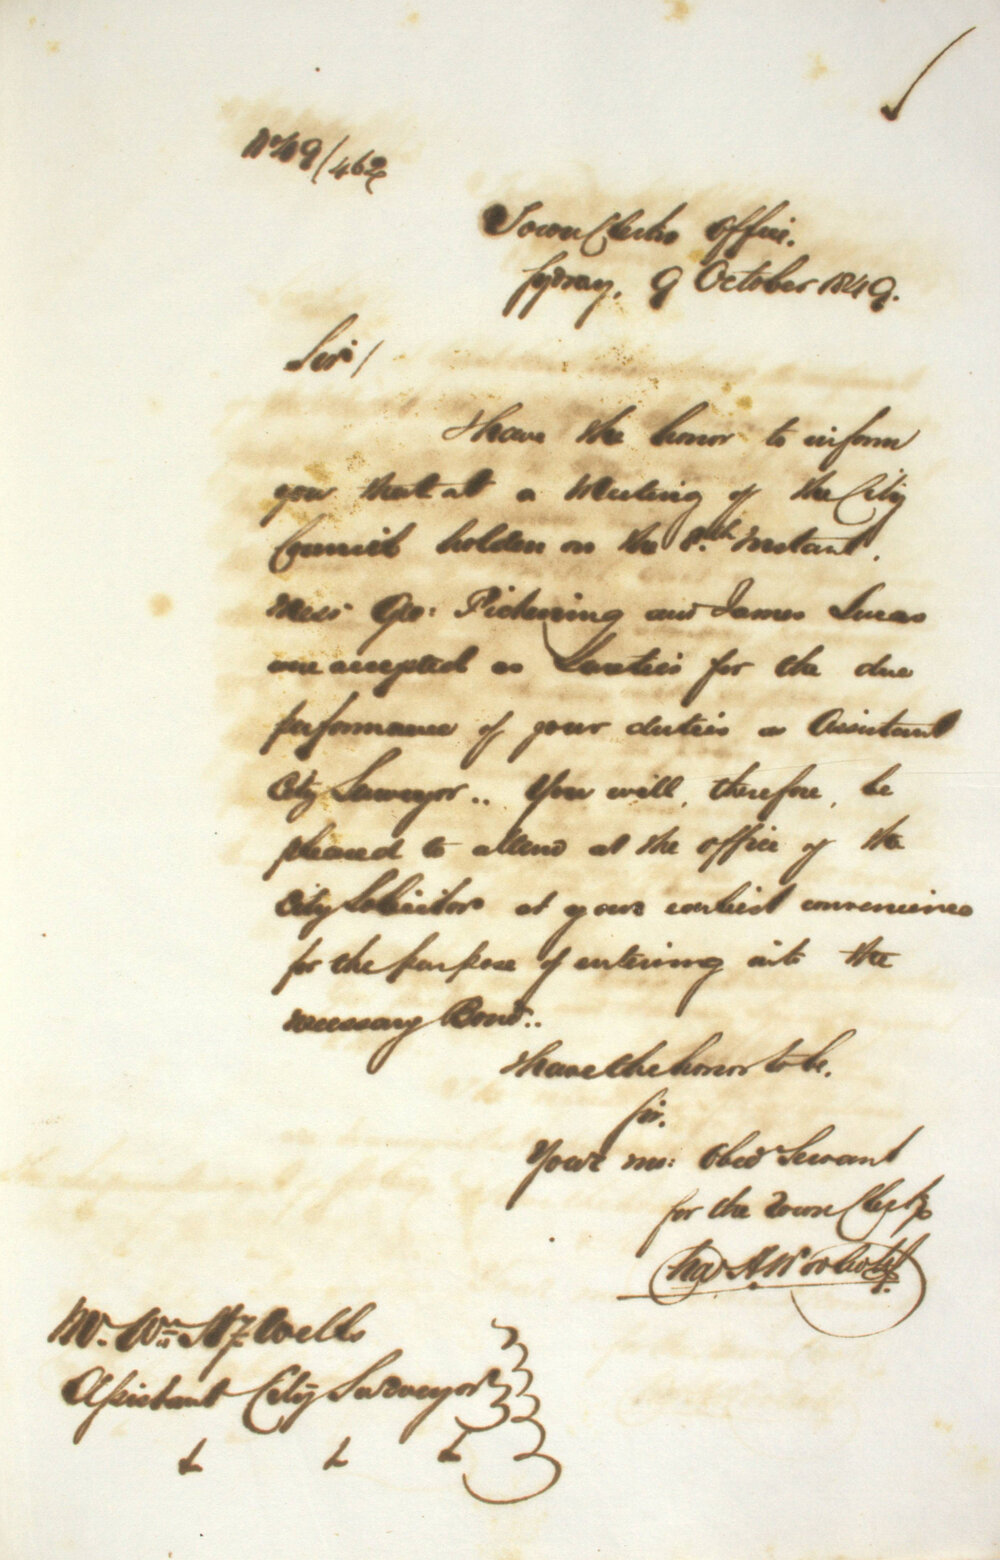 No 49/462
Town Clerks Office.
Sydney, 9 October 1849.
Sir/
I have the honor to inform
you that at a Meeting of the City
Council holden on the 8.th Instant.
Messrs Geo: Pickering and James Lucas
were accepted as Sureties for the due
performance of your duties as Assistant
City Surveyor.. You will, therefore, be
pleased to attend at the office of the
City Solicitor at your earliest convenience
for the purpose of entering into the
necessary Bond..
I have the honor to be.
Sir.
Your mo: Obed Servant
for the Town Clerk
Chas
Mr. Wm Wells
Assistant City Surveyor